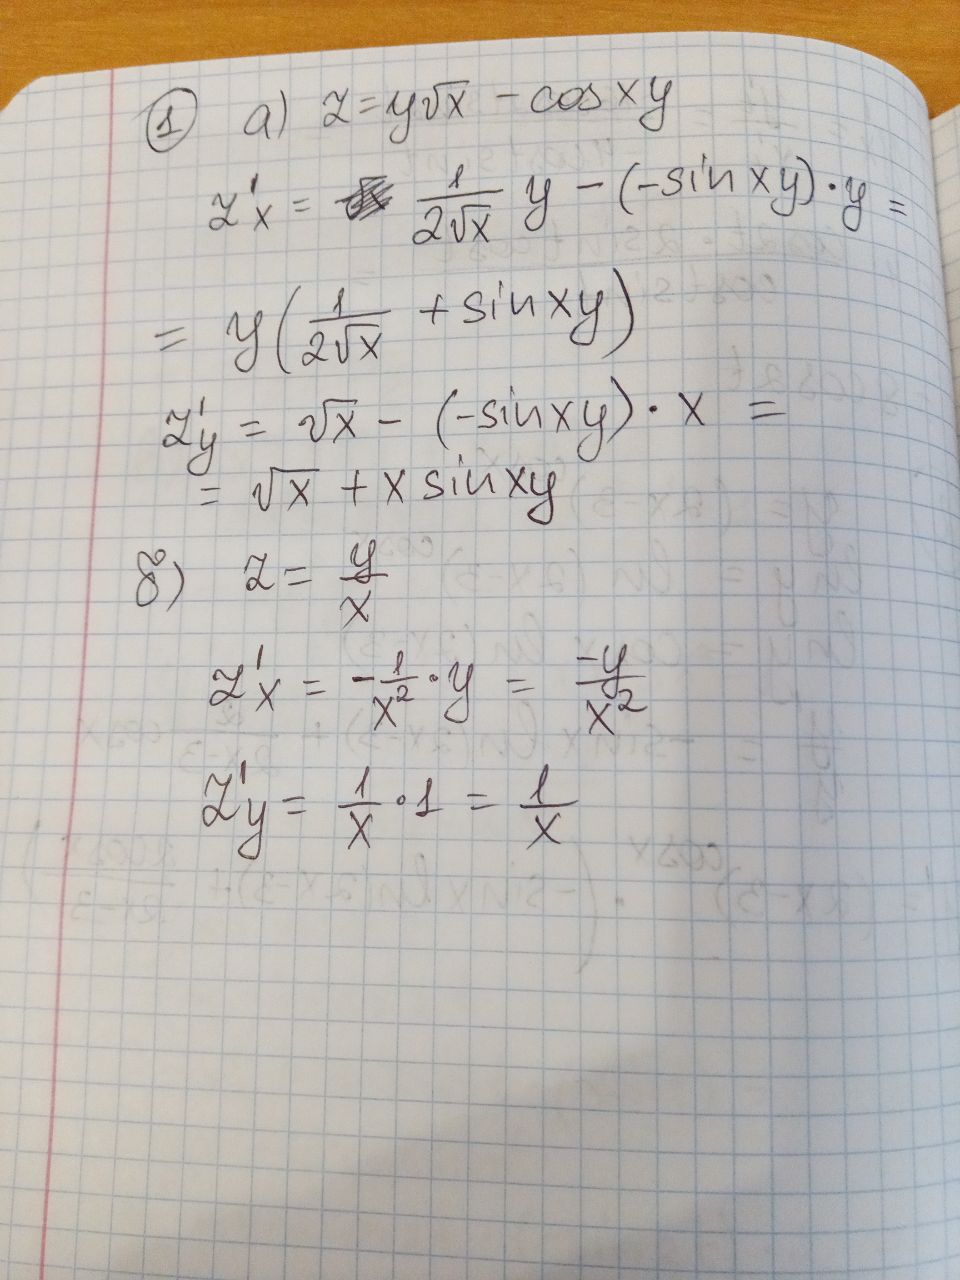 ① а) z = y√x - cos xy
z'x = 1/(2√x) y - (-sin xy) · y =
= y(1/(2√x) + sin xy)
z'y = √x - (-sin xy) · x =
= √x + x sin xy
б) z = y/x
z'x = -1/x² · y = -y/x²
z'y = 1/x · 1 = 1/x